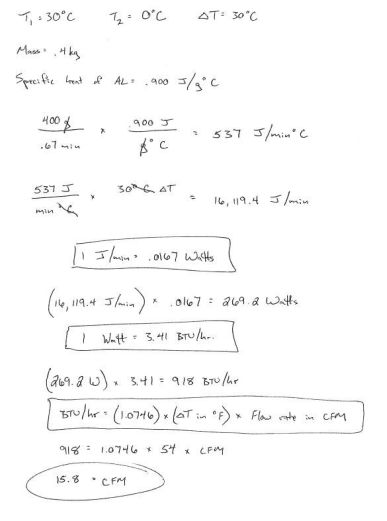 T₁ = 30°C T₂ = 0°C ΔT = 30°C
Mass = .4 kg
Specific heat of AL = .900 J/g°C
400 g / .67 min × .900 J / g°C = 537 J/min°C
537 J / min °C × 30°C ΔT = 16,119.4 J/min
1 J/min = .0167 Watts
(16,119.4 J/min) × .0167 = 269.2 Watts
1 Watt = 3.41 BTU/hr.
(269.2 W) × 3.41 = 918 BTU/hr
BTU/hr = (1.0746) × (ΔT in °F) × Flow rate in CFM
918 = 1.0746 × 54 × CFM
15.8 = CFM